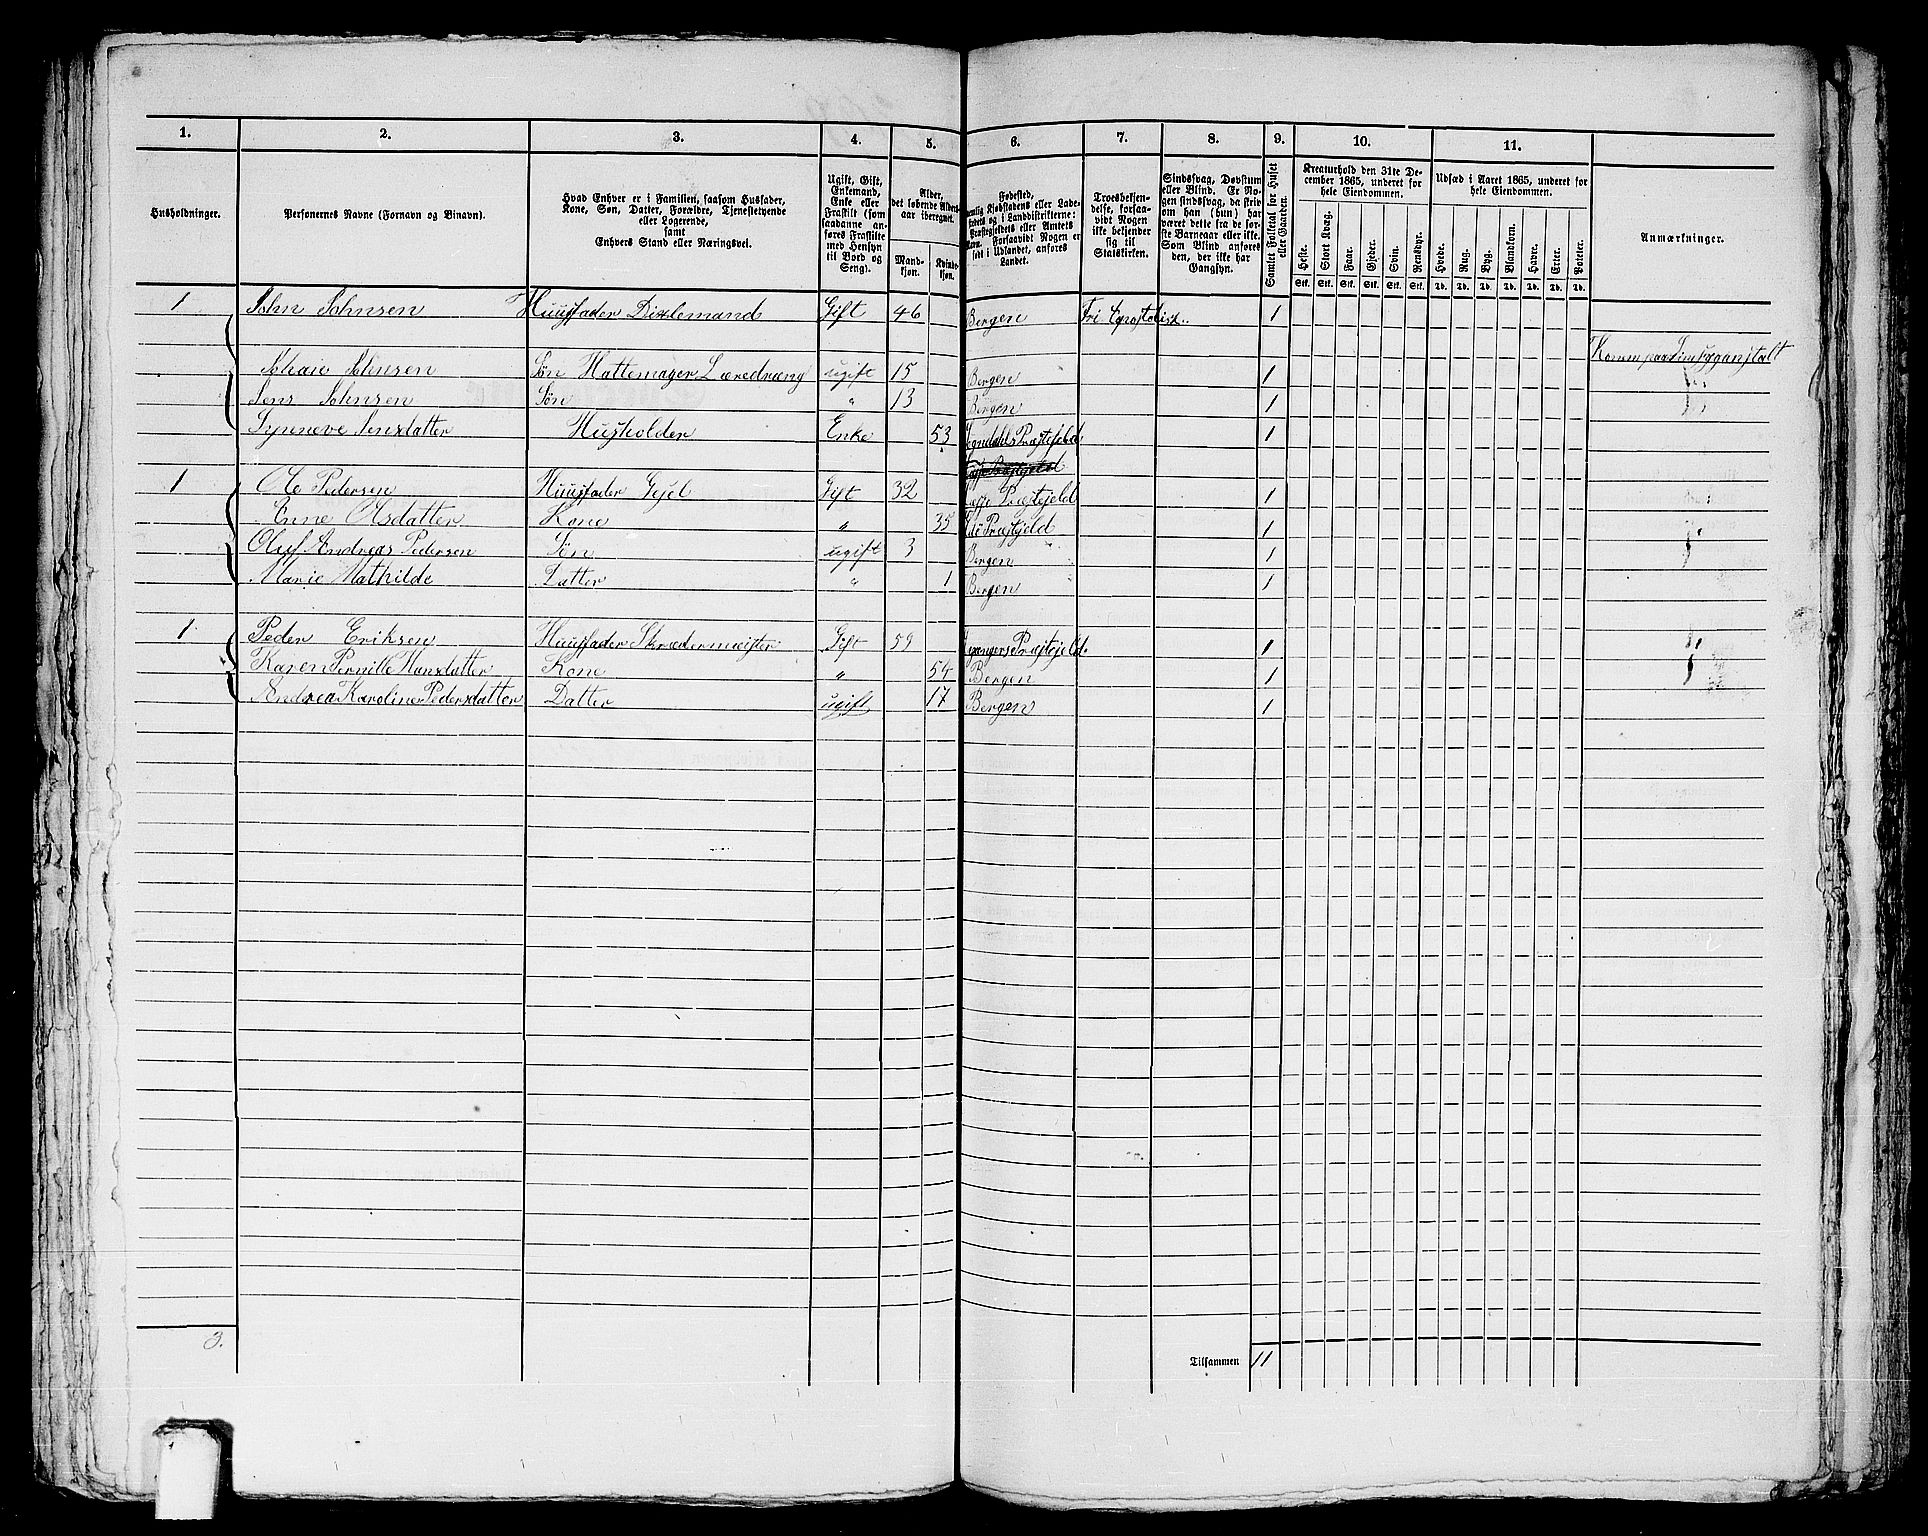 1. 2. 3. 4. 5. 6. 7. 8. 9. 10. 11.
Husholdninger.
Personernes Navne (Fornavn og Binavn).
Hvad Enhver er i Familien, saasom Husfader,
Kone, Søn, Datter, Forældre, Tjenestetyende
eller Logerende,
samt
Enhvers Stand eller Næringsvei.
Ugift, Gift,
Enkemand,
Enke eller
Fraskilt (som
saadanne an-
føres Fraskilte
med Hensyn
til Bord og
Seng).
Alder,
det løbende Alders-
aar iberegnet.
Mand-
kjøn.
Kvinde-
kjøn.
Fødested,
Præstegjeldets eller Amtets
Navn. Forsaavidt Nogen er
født i Udlandet, anføres
Landet.
Troesbekjen-
delse, forsaa-
vidt Nogen
ikke bekjender
sig til
Statskirken.
Sindssvag, Døvstum
eller Blind. Er No-
gen sindssvag, da skriv
om han (hun) har
været dette fra de før-
ste Barneaar eller ikke.
Som Blind anføres
den, der ikke har
Gangsyn.
Samlet Folketal for Huset
eller Gaarden.
Kreaturhold den 31te De-
cember 1865, underet for
hele Eiendommen.
Heste. Stort Kvæg. Faar. Gjeder. Svin. Rensdyr.
Stk. Stk. Stk. Stk. Stk. Stk.
Udsæd i Aaret 1865, underet for
hele Eiendommen.
Hvede. Rug. Byg. Blandkorn. Havre. Erter. Poteter.
Td. Td. Td. Td. Td. Td. Td.
Anmærkninger.
1 John Johnsen Huusfader Dixlemand Gift 46 Bergen Fri Apostolisk. 1
Johan Johnsen Søn Hattemager Læredræng ugift 15 Bergen 1
Jens Johnsen Søn " 13 Bergen 1
Synneve Jensdatter Husholder Enke 53 Præstejeld. 1
1 Ole Pedersen Huusfader Gift 32 Præstejeld 1
Anne Olsdatter Kone " 35 Præstjeld 1
Oluf Andreas Pedersen Søn ugift 3 Bergen 1
Marie Mathilde Datter " 1 Bergen 1
1 Peder Eriksen Huusfader Skrædermeister Gift 59 Præstejeld. 1
Karen Pernille Hansdatter Kone " 54 Bergen 1
Andrea Karoline Pedersdatter Datter ugift 17 Bergen 1
3.
Tilsammen 11